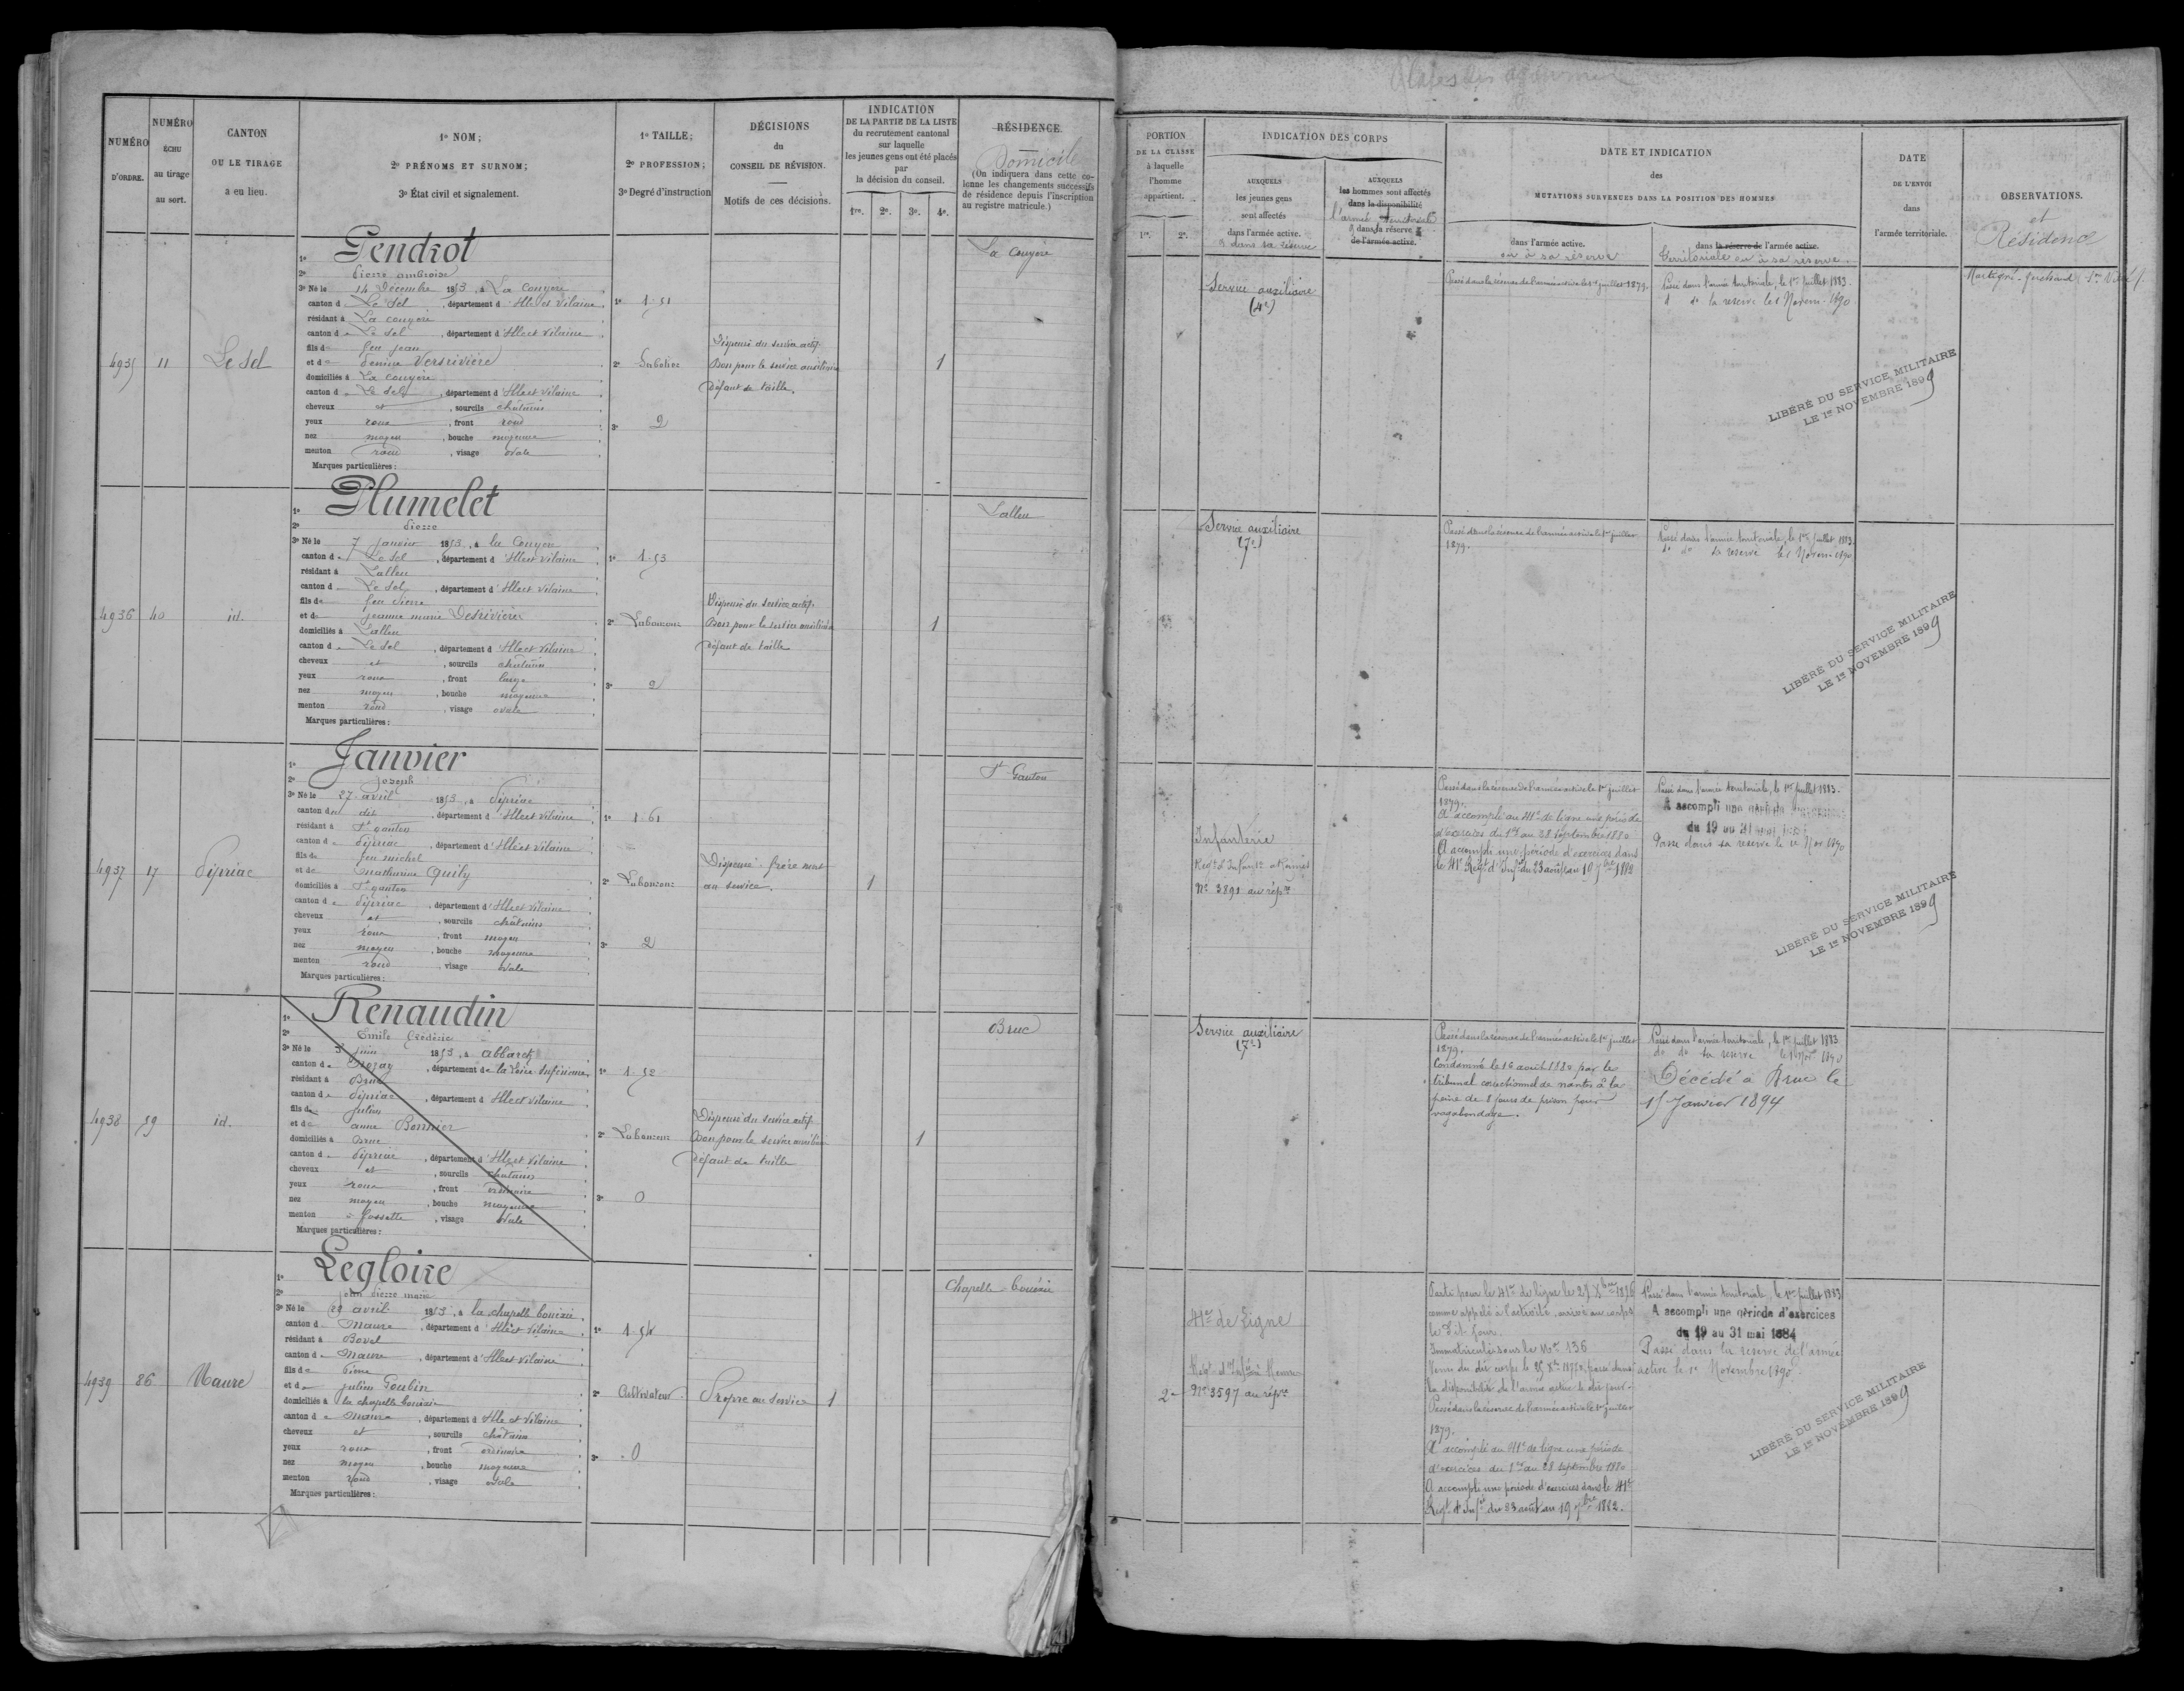 NUMÉRO D'ORDRE.
NUMÉRO ÉCHU au tirage au sort.
CANTON OU LE TIRAGE a eu lieu.
1º NOM;
2º PRÉNOMS ET SURNOM;
3º État civil et signalement.
1º TAILLE;
2º PROFESSION;
3º Degré d'instruction
DÉCISIONS
du
CONSEIL DE RÉVISION.
Motifs de ces décisions.
INDICATION
DE LA PARTIE DE LA LISTE
du recrutement cantonal
sur laquelle
les jeunes gens ont été placés
par
la décision du conseil.
1re. 2e. 3e. 4e.
RÉSIDENCE.
Domicile
(On indiquera dans cette co-
lonne les changements successifs
de résidence depuis l'inscription
au registre matricule.)
PORTION
DE LA CLASSE
à laquelle
l'homme
appartient.
1re. 2e.
INDICATION DES CORPS
AUXQUELS
les jeunes gens
sont affectés
dans l'armée active.
& dans sa réserve
AUXQUELS
les hommes sont affectés
dans la disponibilité
l'armée territoriale
& dans sa réserve
de l'armée active.
DATE ET INDICATION
des
MUTATIONS SURVENUES DANS LA POSITION DES HOMMES
dans l'armée active.
ou à sa réserve
dans la réserve de l'armée active.
territoriale ou à sa réserve
DATE
DE L'ENVOI
dans
l'armée territoriale.
OBSERVATIONS.
et
Résidence
4935 11 Le Sel
1º Gendrot
2º Pierre ambroise
3º Né le 14 Décembre 1853, à La Couyère
canton d Le Sel, département d'Ille et Vilaine
résidant à La couyère
canton de Le Sel, département d'Ille et Vilaine
fils de feu jean
et de
domiciliés à La couyère
canton de Le Sel, département d'Ille et Vilaine
cheveux et, sourcils châtains
yeux roux, front rond
nez moyen, bouche moyenne
menton rond, visage ovale
Marques particulières:
1º 1.51
2º Sabotier
3º 2
Dispensé du service actif
Bon pour le service auxiliaire
Défaut de taille
1
La Couyère
Service auxiliaire
(4e)
Passé dans la réserve de l'armée active le 1er juillet 1879.
Passé dans l'armée territoriale, le 1er juillet 1883.
do do la réserve le 1 Novem. 1890
LIBÉRÉ DU SERVICE MILITAIRE
LE 1er NOVEMBRE 1899
4936 40 id.
1º Plumelet
2º Pierre
3º Né le 7 janvier 1853, à la Couyère
canton de Le Sel, département d'Ille et Vilaine
résidant à Lalleu
canton de Le Sel, département d'Ille et Vilaine
fils de feu Pierre
et de jeanne marie Desrivières
domiciliés à Lalleu
canton de Le Sel, département d'Ille et Vilaine
cheveux et, sourcils châtains
yeux roux, front large
nez moyen, bouche moyenne
menton rond, visage ovale
Marques particulières:
1º 1.53
2º Laboureur
3º 2
Dispensé du service actif
Bon pour le service auxiliaire
Défaut de taille
1
Lalleu
Service auxiliaire
(7e)
Passé dans la réserve de l'armée active le 1er juillet
1879.
Passé dans l'armée territoriale, le 1er juillet 1883.
do do sa réserve le 1 Novem. 1890
LIBÉRÉ DU SERVICE MILITAIRE
LE 1er NOVEMBRE 1899
4937 17 Pipriac
1º Janvier
2º Joseph
3º Né le 27 avril 1853, à Pipriac
canton du dit, département d'Ille et Vilaine
résidant à St ganton
canton de Pipriac, département d'Ille et Vilaine
fils de feu michel
et de Mathurine Quily
domiciliés à St ganton
canton de Pipriac, département d'Ille et Vilaine
cheveux et, sourcils châtains
yeux roux, front moyen
nez moyen, bouche moyenne
menton rond, visage ovale
Marques particulières:
1º 1.61
2º Laboureur
3º 2
Dispensé frère mort
au service.
1
St Ganton
Infanterie
Régt d'Infanterie de Rennes
No 3891 au répre
Passé dans la réserve de l'armée active le 1er juillet
1879.
A accompli au 41e de ligne une période
d'exercices du 1er au 28 septembre 1880
A accompli une période d'exercices dans
le 41e Régt d'Infrie du 23 août au 19 7bre 1882
Passé dans l'armée territoriale, le 1er juillet 1883.
A accompli une période d'exercices
du 19 au 31 mai 1884
Passé dans sa réserve le 1e Nov 1890
LIBÉRÉ DU SERVICE MILITAIRE
LE 1er NOVEMBRE 1899
4938 59 id.
1º Renaudin
2º Emile Frédéric
3º Né le 3 juin 1853, à abbaretz
canton de Nozay, département de la Loire Inférieure
résidant à Bruc
canton de Pipriac, département d'Ille et Vilaine
fils de Julien
et de anne Bonnier
domiciliés à Bruc
canton de Pipriac, département d'Ille et Vilaine
cheveux et, sourcils châtains
yeux roux, front ordinaire
nez moyen, bouche moyenne
menton à fossette, visage ovale
Marques particulières:
1º 1.52
2º Laboureur
3º 0
Dispensé du service actif
Bon pour le service auxiliaire
Défaut de taille
1
Bruc
Service auxiliaire
(7e)
Passé dans la réserve de l'armée active le 1er juillet
1879.
Condamné le 16 août 1880 par le
tribunal correctionnel de nantes à la
peine de 8 jours de prison pour
vagabondage.
Passé dans l'armée territoriale, le 1er juillet 1883
do do sa réserve le 1 Nov 1890
Décédé à Bruc le
15 Janvier 1894
4939 86 Maure
1º Legloire
2º jean pierre marie
3º Né le 29 avril 1853, à la chapelle bouëxic
canton de Maure, département d'Ille et Vilaine
résidant à Bovel
canton de Maure, département d'Ille et Vilaine
fils de Pierre
et de julien Goubin
domiciliés à la chapelle bouëxic
canton de Maure, département d'Ille et Vilaine
cheveux et, sourcils châtains
yeux roux, front ordinaire
nez moyen, bouche moyenne
menton rond, visage ovale
Marques particulières:
1º 1.54
2º Cultivateur
3º 0
Propre au service
1
Chapelle-bouëxic
2e
41e de Ligne
Régt d'Infrie Rennes
No 3597 au répre
Parti pour le 41e de ligne le
comme appelé à l'activité, arrivé au corps
le dit jour.
Immatriculé sous le No 136
la disponibilité de l'armée active le dit jour.
Passé dans la réserve de l'armée active le 1er juillet
1879.
A accompli au 41e de ligne une période
d'exercices du 1er au 28 septembre 1880
A accompli une période d'exercices dans le 41e
Régt d'Infie du 23 août au 19 7bre 1882.
Passé dans l'armée territoriale, le 1er juillet 1883
A accompli une période d'exercices
du 19 au 31 mai 1884
Passé dans la réserve de l'armée
active le 1e Novembre 1890
LIBÉRÉ DU SERVICE MILITAIRE
LE 1er NOVEMBRE 1899